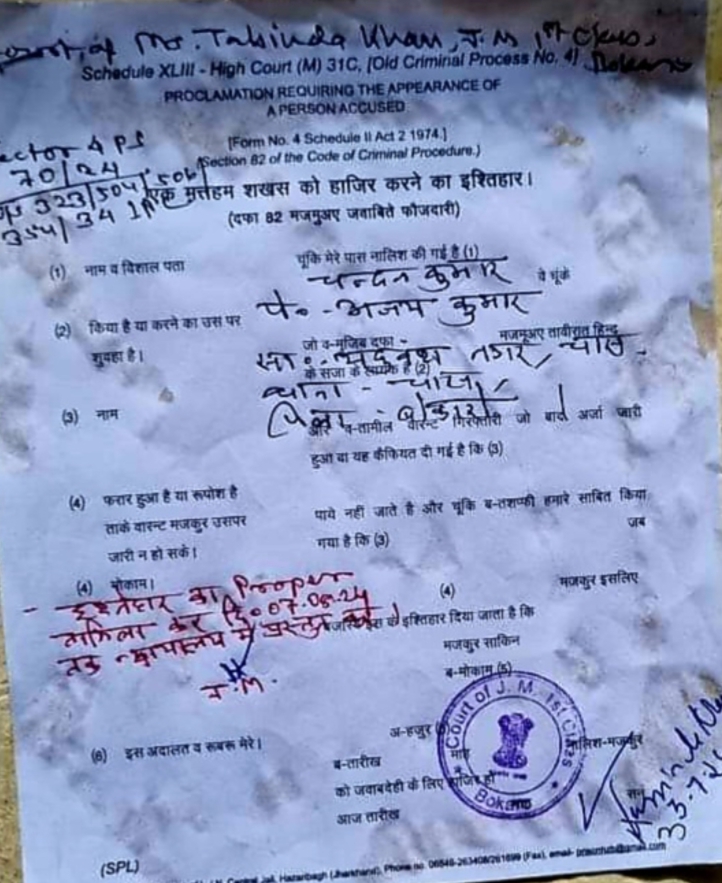 Court of Ms. Tabinda Khan, J.M 1st Class,
Bokaro
Schedule XLIII - High Court (M) 31C, [Old Criminal Process No. 4]
PROCLAMATION REQUIRING THE APPEARANCE OF
A PERSON ACCUSED
[Form No. 4 Schedule II Act 2 1974.]
(Section 82 of the Code of Criminal Procedure.)
ector 4 PS
70/24
323/504/506/
354/34
एक मुत्तहम शखस को हाजिर करने का इश्तिहार।
(दफा 82 मजमुअए जवाबिते फौजदारी)
(1) नाम व विशाल पता
चूंकि मेरे पास नालिश की गई है (1)
चन्दन कुमार
पे०-अजय कुमार
(2) किया है या करने का उस पर
शुवहा है।
जो व-मुजिब दफा -
मजमुअए ताबीरात हिन्द
सा०- नगर, चास
थाना - चास,
जिला - बोकारो
(3) नाम
और व-तामील वारन्ट गिरफ्तारी जो अर्जा जारी
हुआ था यह कैफियत दी गई है कि (3)
(4) फरार हुआ है या रूपोश है
ताके वारन्ट मजकुर उसपर
जारी न हो सके।
पाये नहीं जाते है और चूंकि ब-तशफ्फी हमारे साबित किया
गया है कि (3)
जब
(4) मोकाम।
(4)
मजकुर इसलिए
- इश्तेहार का Proper
तामिला कर दि० 07.08.24
तक न्यायालय में प्रस्तुत करे।
J.M.
इस के इश्तिहार दिया जाता है कि
मजकुर साकिन
ब-मोकाम (5)
(6) इस अदालत व रूबरू मेरे।
अ-हजुर
ब-तारीख
माह
नालिश-मजकुर
को जवाबदेही के लिए हाजिर हो
आज तारीख
सन्
Court of J. M. 1st Class
Bokaro
(SPL)
Central Jail, Hazaribagh (Jharkhand), Phone no. 06546-263408/261699 (Fax), email-